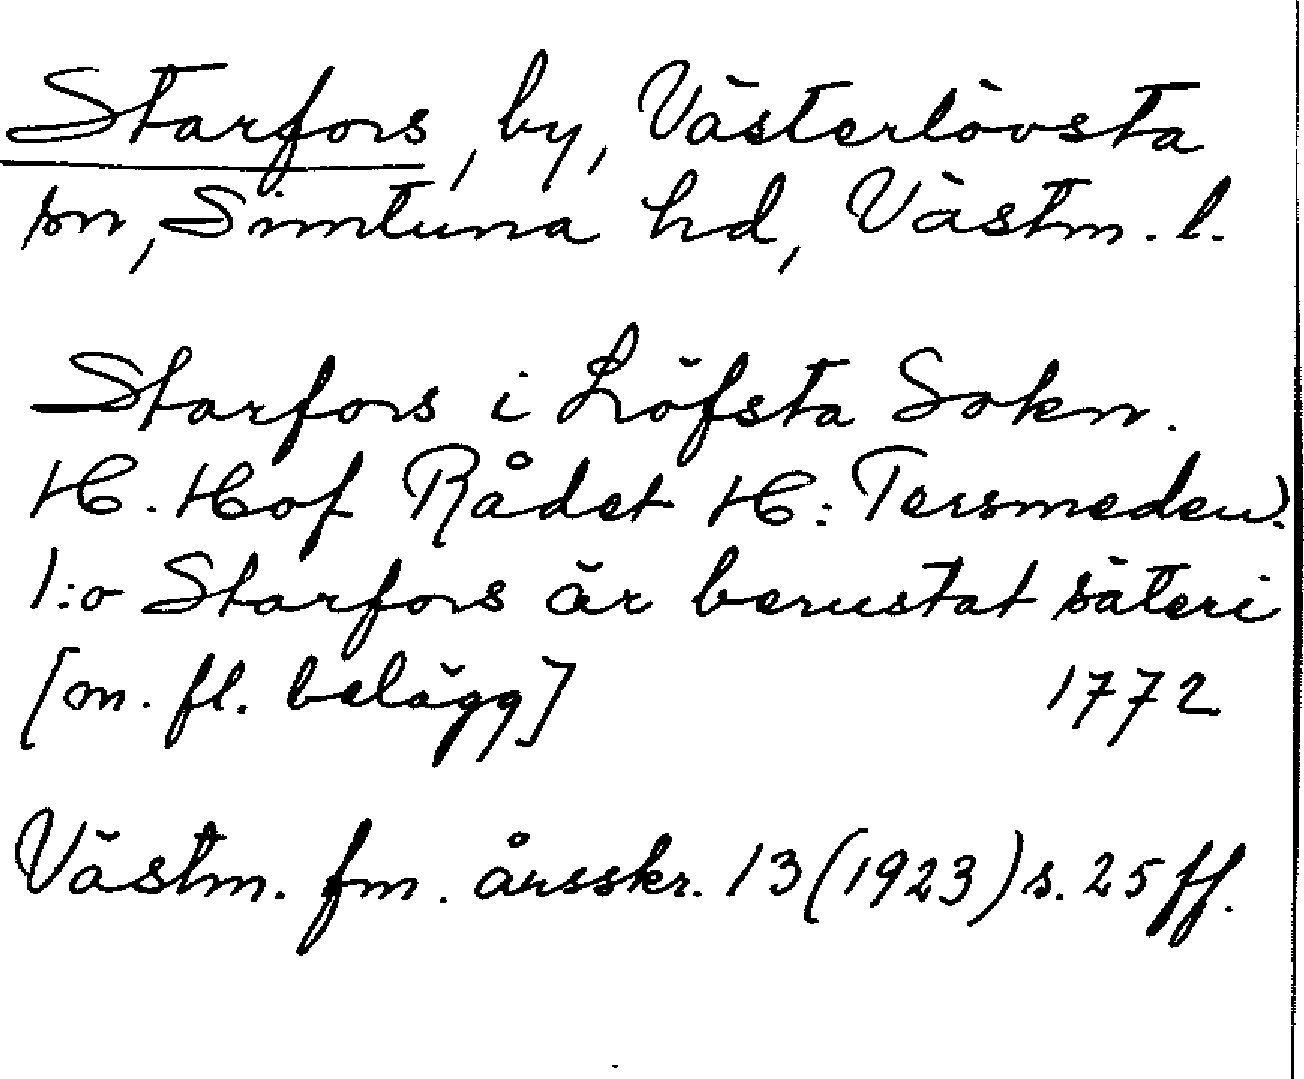 Starfors, by, Västerlövsta
sn, Simtuna hd, Västm. l.
Starfors i Löfsta Sokn.
H. Hof Rådet H: Tersmeden:
1:o Starfors är berustat säteri
[m. fl. belägg] 1772
Västm. fm. årsskr. 13 (1923) s. 25 ff.